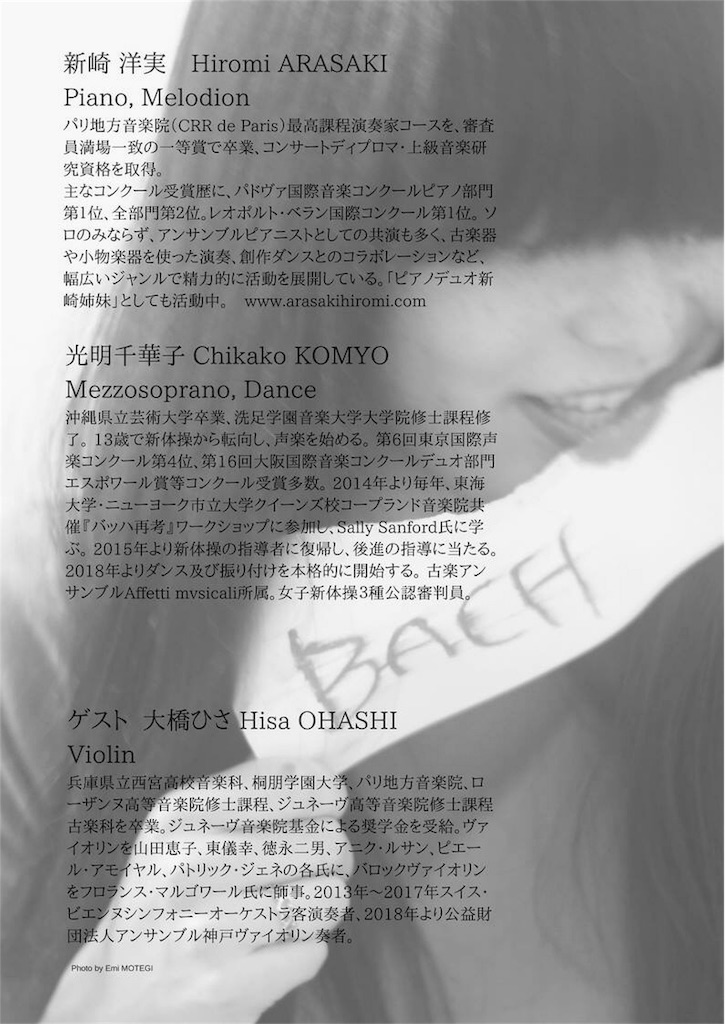 新崎 洋実　Hiromi ARASAKI
Piano, Melodion
パリ地方音楽院（CRR de Paris）最高課程演奏家コースを、審査
員満場一致の一等賞で卒業、コンサートディプロマ・上級音楽研
究資格を取得。
主なコンクール受賞歴に、パドヴァ国際音楽コンクールピアノ部門
第1位、全部門第2位。レオポルト・ベラン国際コンクール第1位。 ソ
ロのみならず、アンサンブルピアニストとしての共演も多く、古楽器
や小物楽器を使った演奏、創作ダンスとのコラボレーションなど、
幅広いジャンルで精力的に活動を展開している。「ピアノデュオ新
崎姉妹」としても活動中。　www.arasakihiromi.com
光明千華子 Chikako KOMYO
Mezzosoprano, Dance
沖縄県立芸術大学卒業、洗足学園音楽大学大学院修士課程修
了。 13歳で新体操から転向し、声楽を始める。 第6回東京国際声
楽コンクール第4位、第16回大阪国際音楽コンクールデュオ部門
エスポワール賞等コンクール受賞多数。 2014年より毎年、東海
大学・ニューヨーク市立大学クイーンズ校コープランド音楽院共
催『バッハ再考』ワークショップに参加し、Sally Sanford氏に学
ぶ。 2015年より新体操の指導者に復帰し、後進の指導に当たる。
2018年よりダンス及び振り付けを本格的に開始する。 古楽アン
サンブルAffetti mvsicali所属。女子新体操3種公認審判員。
BACH
ゲスト　大橋ひさ Hisa OHASHI
Violin
兵庫県立西宮高校音楽科、桐朋学園大学、パリ地方音楽院、ロ
ーザンヌ高等音楽院修士課程、ジュネーヴ高等音楽院修士課程
古楽科を卒業。ジュネーヴ音楽院基金による奨学金を受給。ヴァ
イオリンを山田恵子、東儀幸、徳永二男、アニク・ルサン、ピエー
ル・アモイヤル、パトリック・ジュネの各氏に、バロックヴァイオリン
をフロランス・マルゴワール氏に師事。2013年～2017年スイス・
ビエンヌシンフォニーオーケストラ客演奏者、2018年より公益財
団法人アンサンブル神戸ヴァイオリン奏者。
Photo by Emi MOTEGI